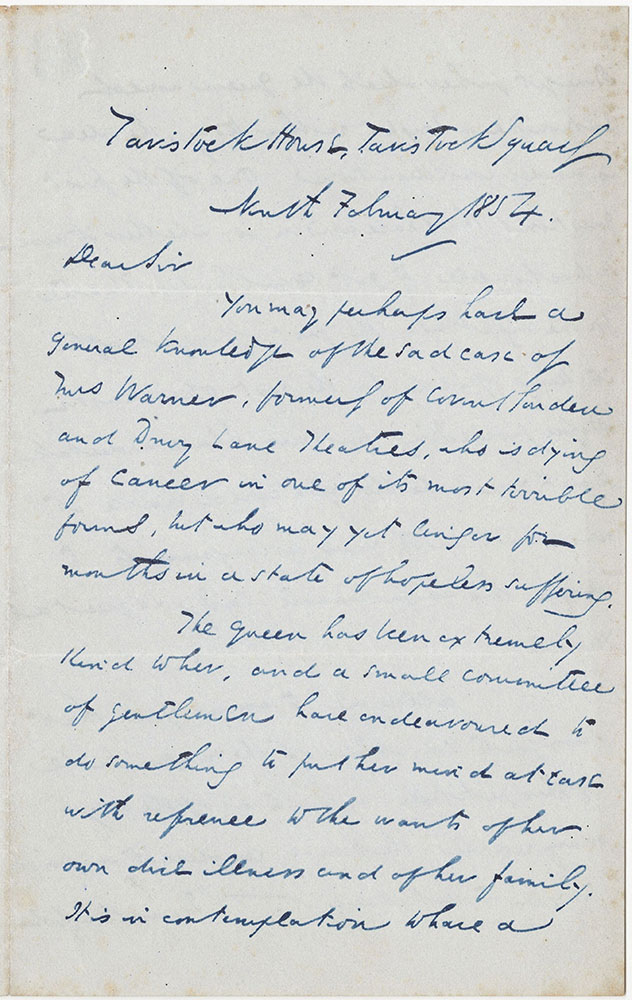 Tavistock House, Tavistock Square
Ninth February 1854.
Dear Sir
You may perhaps have a
general knowledge of the sad case of
Mrs Warner, formerly of Covent Garden
and Drury Lane Theatres, who is dying
of cancer in one of its most terrible
forms, but who may yet linger for
months in a state of hopeless suffering.
The Queen has been extremely
kind to her, and a small committee
of gentlemen have endeavoured to
do something to put her mind at ease
with reference to the wants of her
own dire illness and of her family.
It is in contemplation to have a